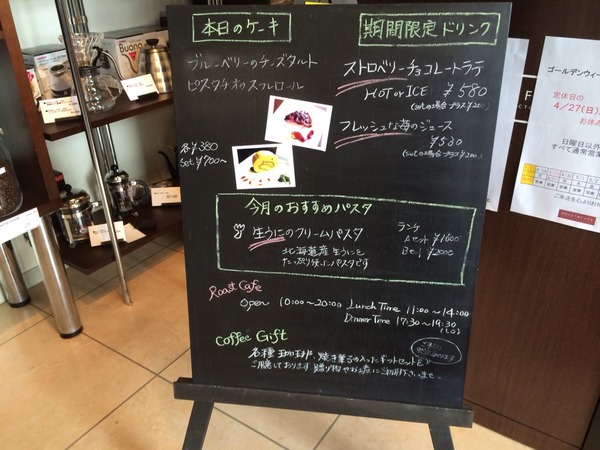 本日のケーキ
ブルーベリーのチーズタルト
ピスタチオのスフレロール
各¥380
Set ¥700~
期間限定ドリンク
ストロベリーチョコレートラテ
HOT or ICE ¥580
フレッシュな苺のジュース
¥530
今月のおすすめパスタ
生うにのクリームパスタ
北海道産生うにを
たっぷり使ったパスタです
ランチ
Aセット ¥1600
Bセット ¥2000
Roast Cafe
Open 10:00~20:00 Lunch Time 11:00~14:00
Dinner Time 17:30~19:30
(LO)
Coffee Gift
各種珈琲、焼き菓子の入ったギフトセットを
ご用意しております。贈り物やお土産にご利用下さいませ。
Buono
ゴールデンウィー
定休日の
4/27(日)
お休み
日曜日以外
すべて通常営業